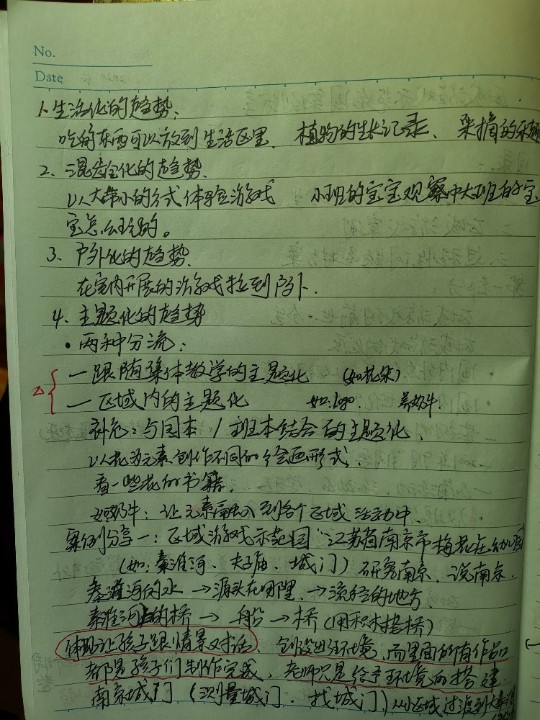 No.
Date
1. 生活化的趋势.
吃的东西可以放到生活区里. 植物的生长记录、采摘的
2. 混龄化的趋势.
以大带小的方式体验游戏 小班的宝宝观察中大班的宝
宝怎么玩的。
3. 户外化的趋势.
在室内开展的游戏拉到户外.
4. 主题化的趋势
• 两种分流:
一 跟随集体教学的主题化 (如花朵)
一 区域内的主题化 如:logo.
补充:与园本/班本结合的主题化.
以花为元素创作不同的绘画形式.
看一些花的书籍.
让元素融入到各个区域活动中.
案例分享一:区域游戏示范园 "江苏省南京市梅花庄幼儿园
(如:秦淮河、夫子庙、城门) 研究南京、说南京.
秦淮河的水 → 源头在哪里 → 流经的地方.
秦淮河上的桥 → 船 → 桥 (用积木搭桥)
体现让孩子跟情景对话. 创设出环境, 而里面所有作品
都是孩子们制作完成, 老师只是给予环境的搭建.
南京城门 (测量城门、找城门) 从小区域过渡到